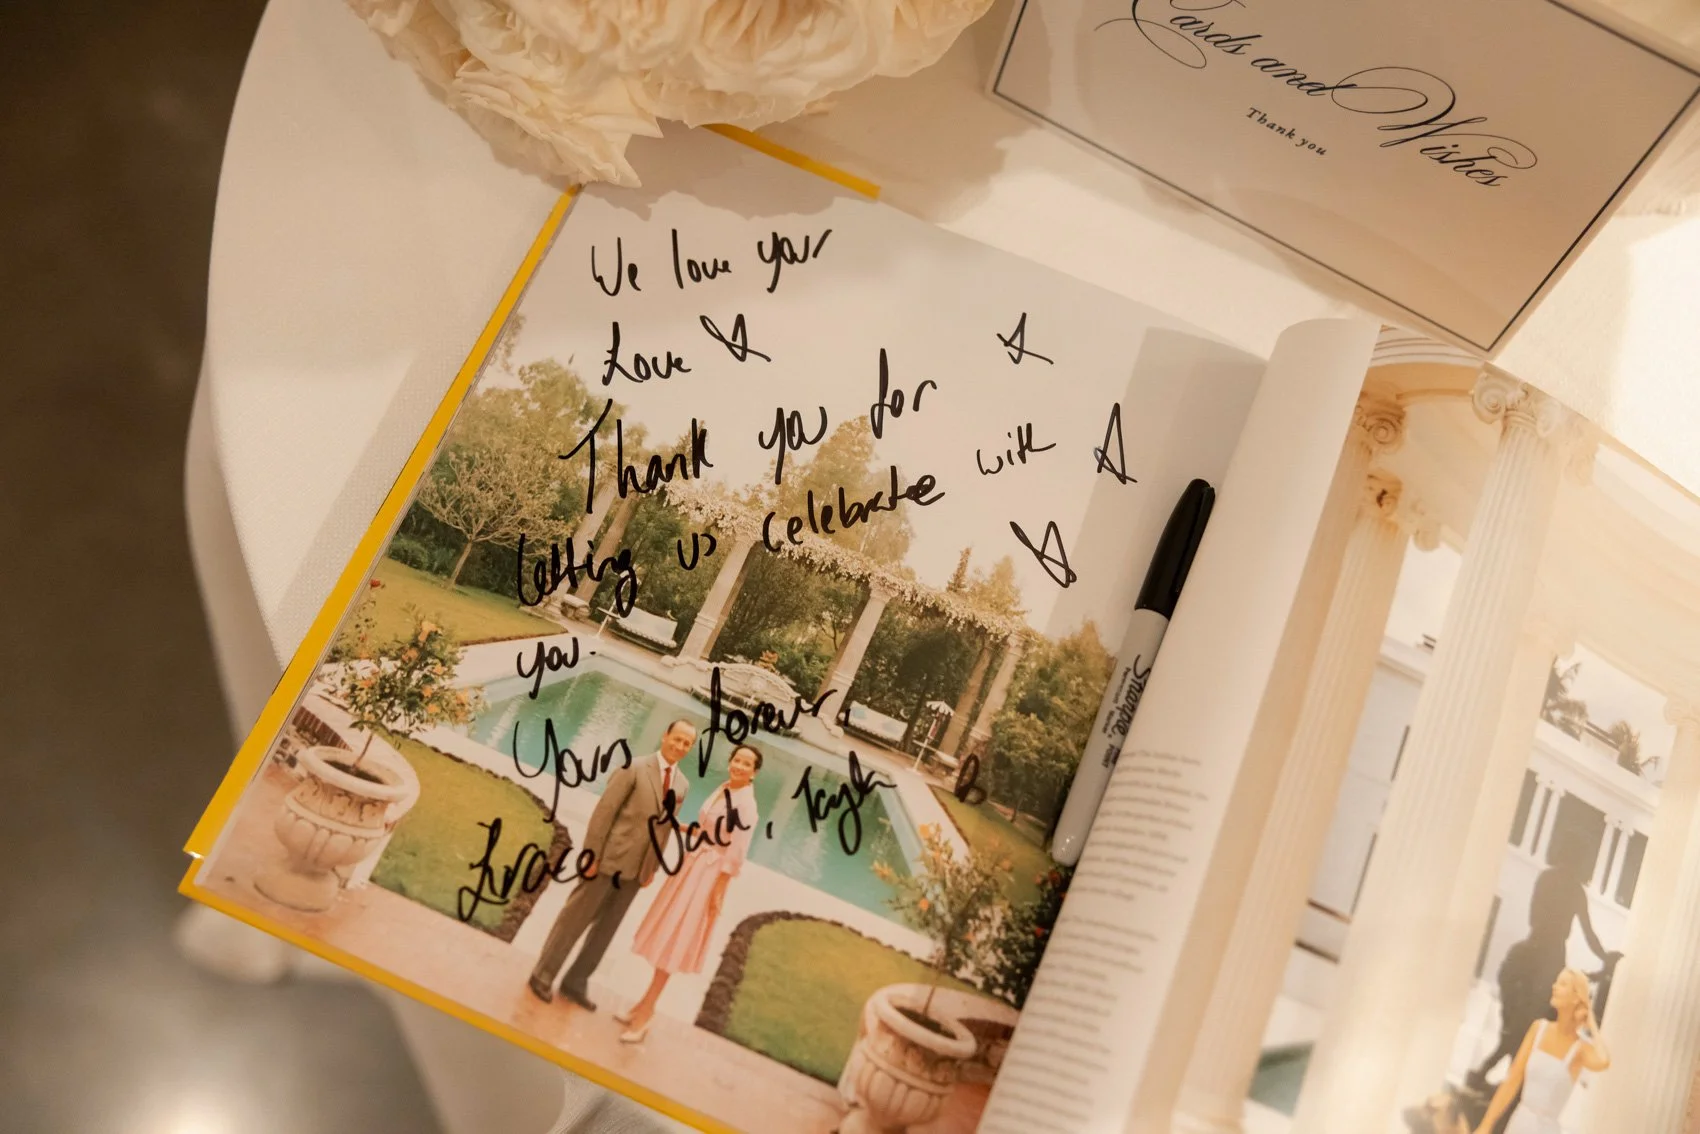 Cards and Wishes
Thank you
We love your
Love
Thank you for
letting us celebrate with
you.
Yours forever,
Grace, Jack, Tayla B
Sharpie